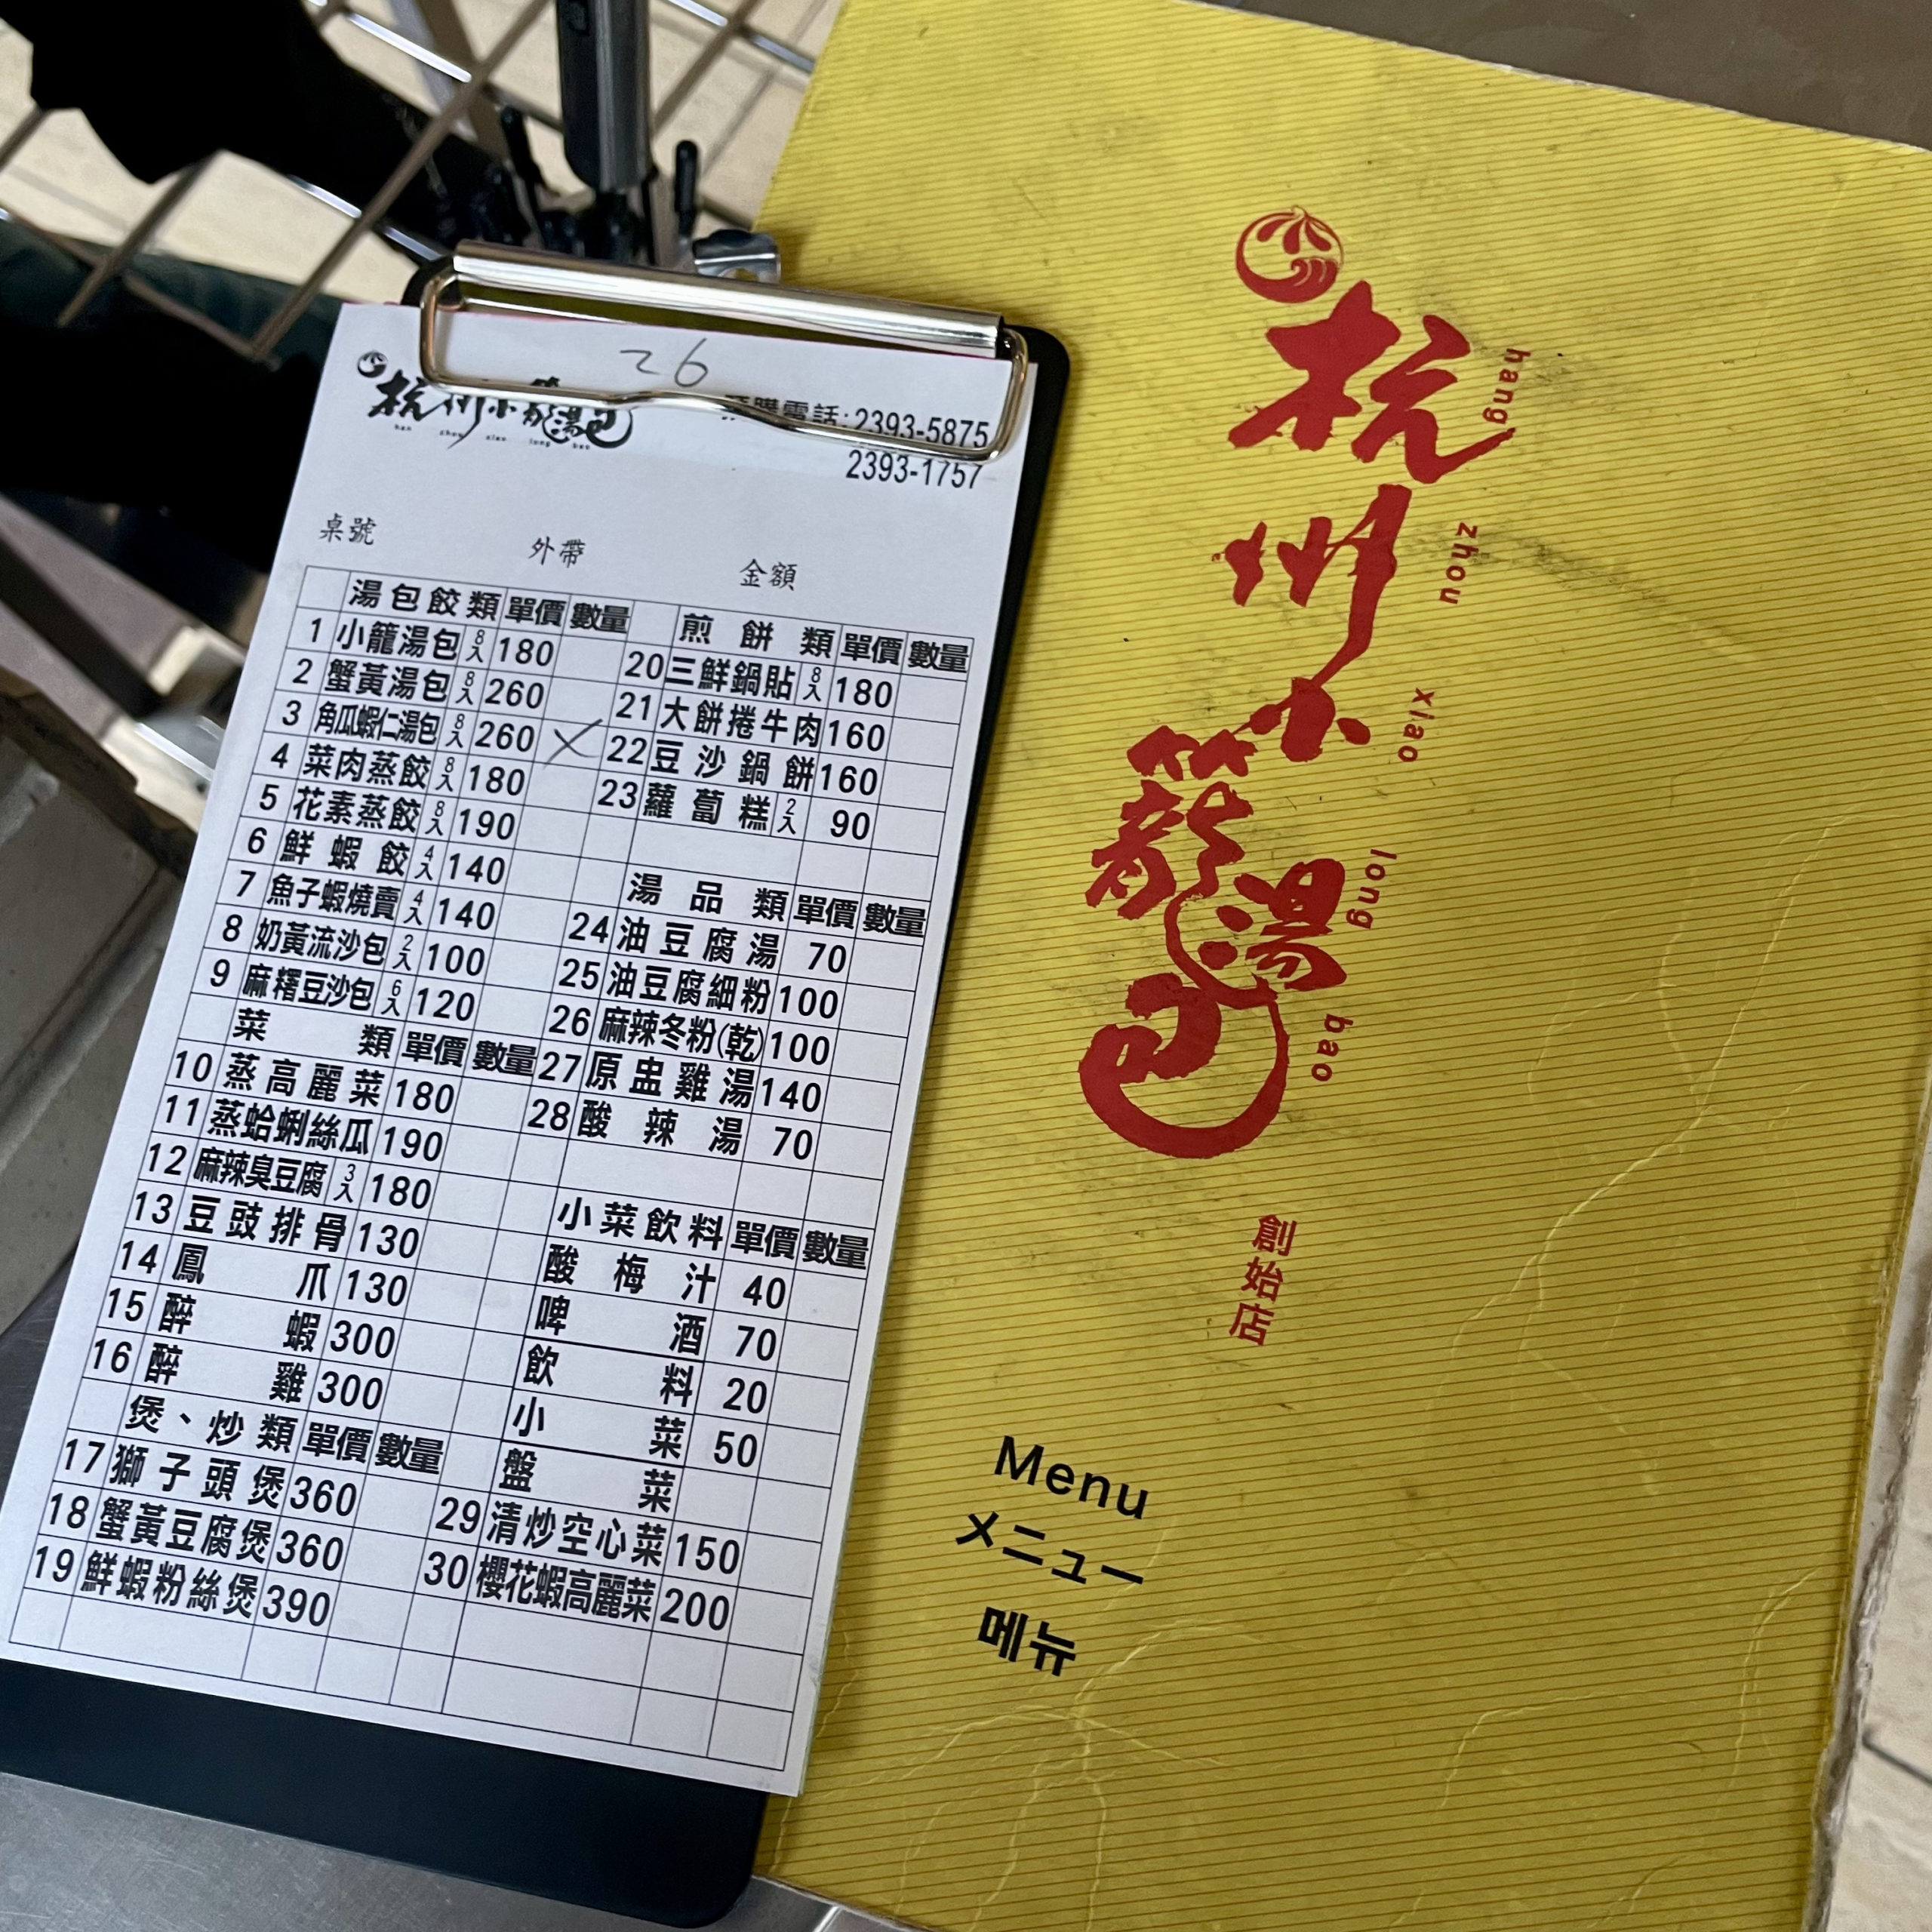 26
杭州小籠湯包
han zhou xiao long bao
電話:2393-5875
2393-1757
桌號 外帶 金額
湯包餃類 單價 數量
1 小籠湯包 8入 180
2 蟹黃湯包 8入 260
3 角瓜蝦仁湯包 8入 260 X
4 菜肉蒸餃 8入 180
5 花素蒸餃 8入 190
6 鮮蝦餃 4入 140
7 魚子蝦燒賣 4入 140
8 奶黃流沙包 2入 100
9 麻糬豆沙包 6入 120
菜類 單價 數量
10 蒸高麗菜 180
11 蒸蛤蜊絲瓜 190
12 麻辣臭豆腐 3入 180
13 豆豉排骨 130
14 鳳爪 130
15 醉蝦 300
16 醉雞 300
煲、炒類 單價 數量
17 獅子頭煲 360
18 蟹黃豆腐煲 360
19 鮮蝦粉絲煲 390
煎餅類 單價 數量
20 三鮮鍋貼 8入 180
21 大餅捲牛肉 160
22 豆沙鍋餅 160
23 蘿蔔糕 2入 90
湯品類 單價 數量
24 油豆腐湯 70
25 油豆腐細粉 100
26 麻辣冬粉(乾) 100
27 原盅雞湯 140
28 酸辣湯 70
小菜飲料 單價 數量
酸梅汁 40
啤酒 70
飲料 20
小菜 50
盤菜
29 清炒空心菜 150
30 櫻花蝦高麗菜 200
杭州小籠湯包
hang zhou xiao long bao
創始店
Menu
メニュー
메뉴